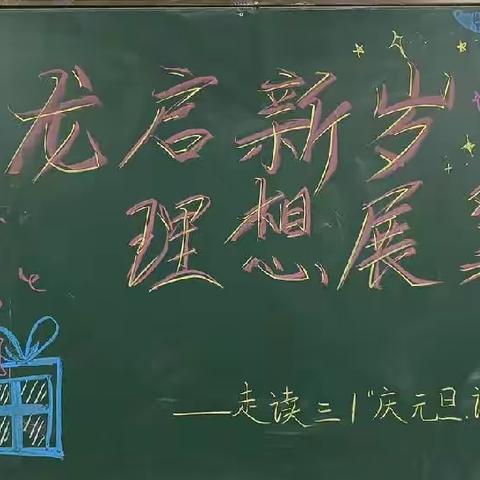 龙启新岁
理想展
——走读三1“庆元旦.